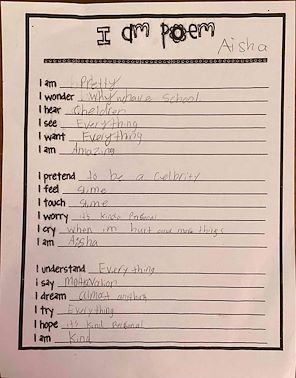 I am poem
Aisha
I am Pretty
I wonder Why whave School
I hear Cheldren
I see Everything
I want Everything
I am Amazing
I pretend to be a Celbrity
I feel Slime
I touch Slime
I worry it's kinda Personal
I cry when im hurt and more things
I am Aisha
I understand Everything
I say Motavation
I dream almost
I try Everything
I hope it's kind Personal
I am Kind